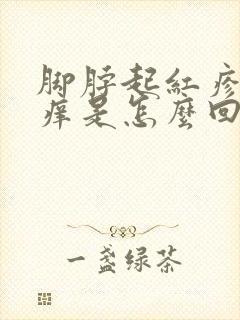 脚脖起红疹
痒是怎麼回
一盏绿茶